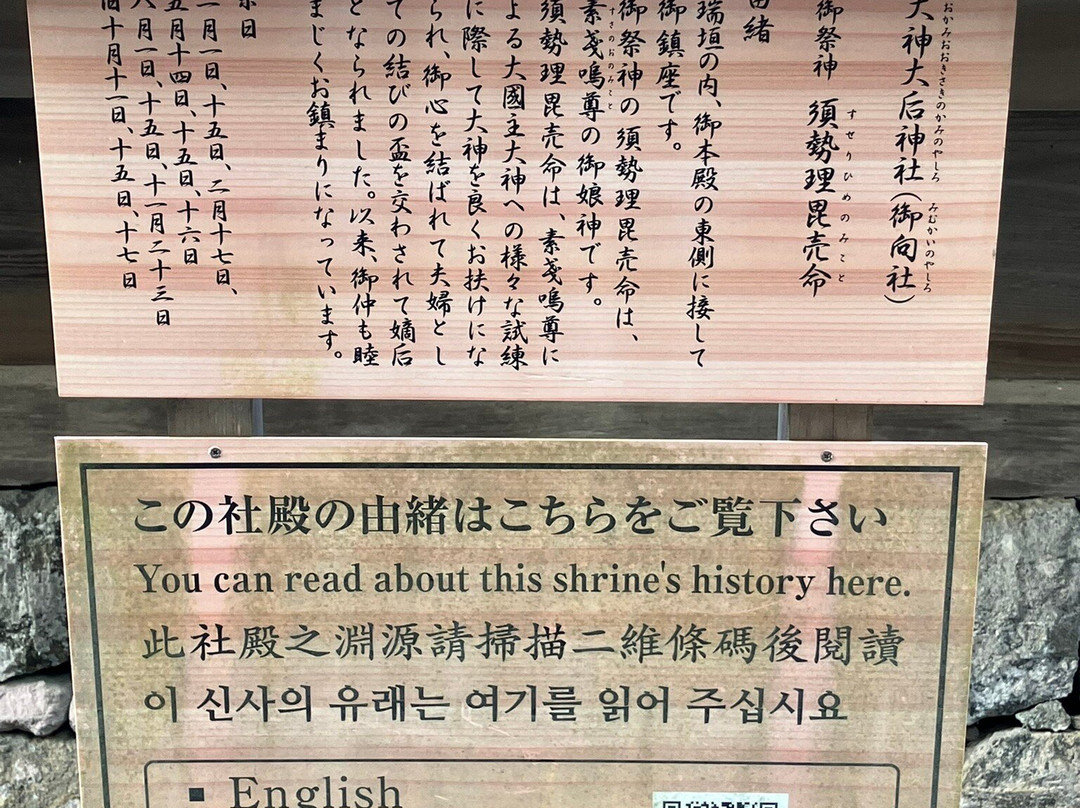 大神大后神社（御向社）
おかみおおきさきのかみのやしろ
みむかいのやしろ
御祭神 須勢理毘売命
すせりひめのみこと
由緒
瑞垣の内、御本殿の東側に接して
御鎮座です。
御祭神の須勢理毘売命は、
素戔嗚尊の御娘神です。
すさのおのみこと
須勢理毘売命は、素戔嗚尊に
よる大國主大神への様々な試練
に際して大神を良くお扶けにな
られ、御心を結ばれて夫婦とし
ての結びの盃を交わされて嫡后
となられました。以来、御仲も睦
まじくお鎮まりになっています。
日
月一日、十五日、二月十七日、
五月十四日、十五日、十六日
八月一日、十五日、十一月二十三日
十月十一日、十五日、十七日
この社殿の由緒はこちらをご覧下さい
You can read about this shrine's history here.
此社殿之淵源請掃描二維條碼後閱讀
이 신사의 유래는 여기를 읽어 주십시요
▪ English